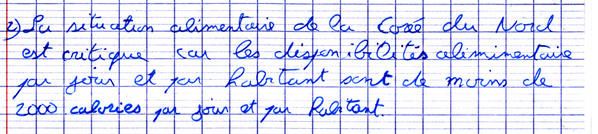 2) La situation alimentaire de la Corée du Nord
est critique car les disponibilités aliminentaire
par jour et par habitant sont de moins de
2000 calories par jour et par habitant.